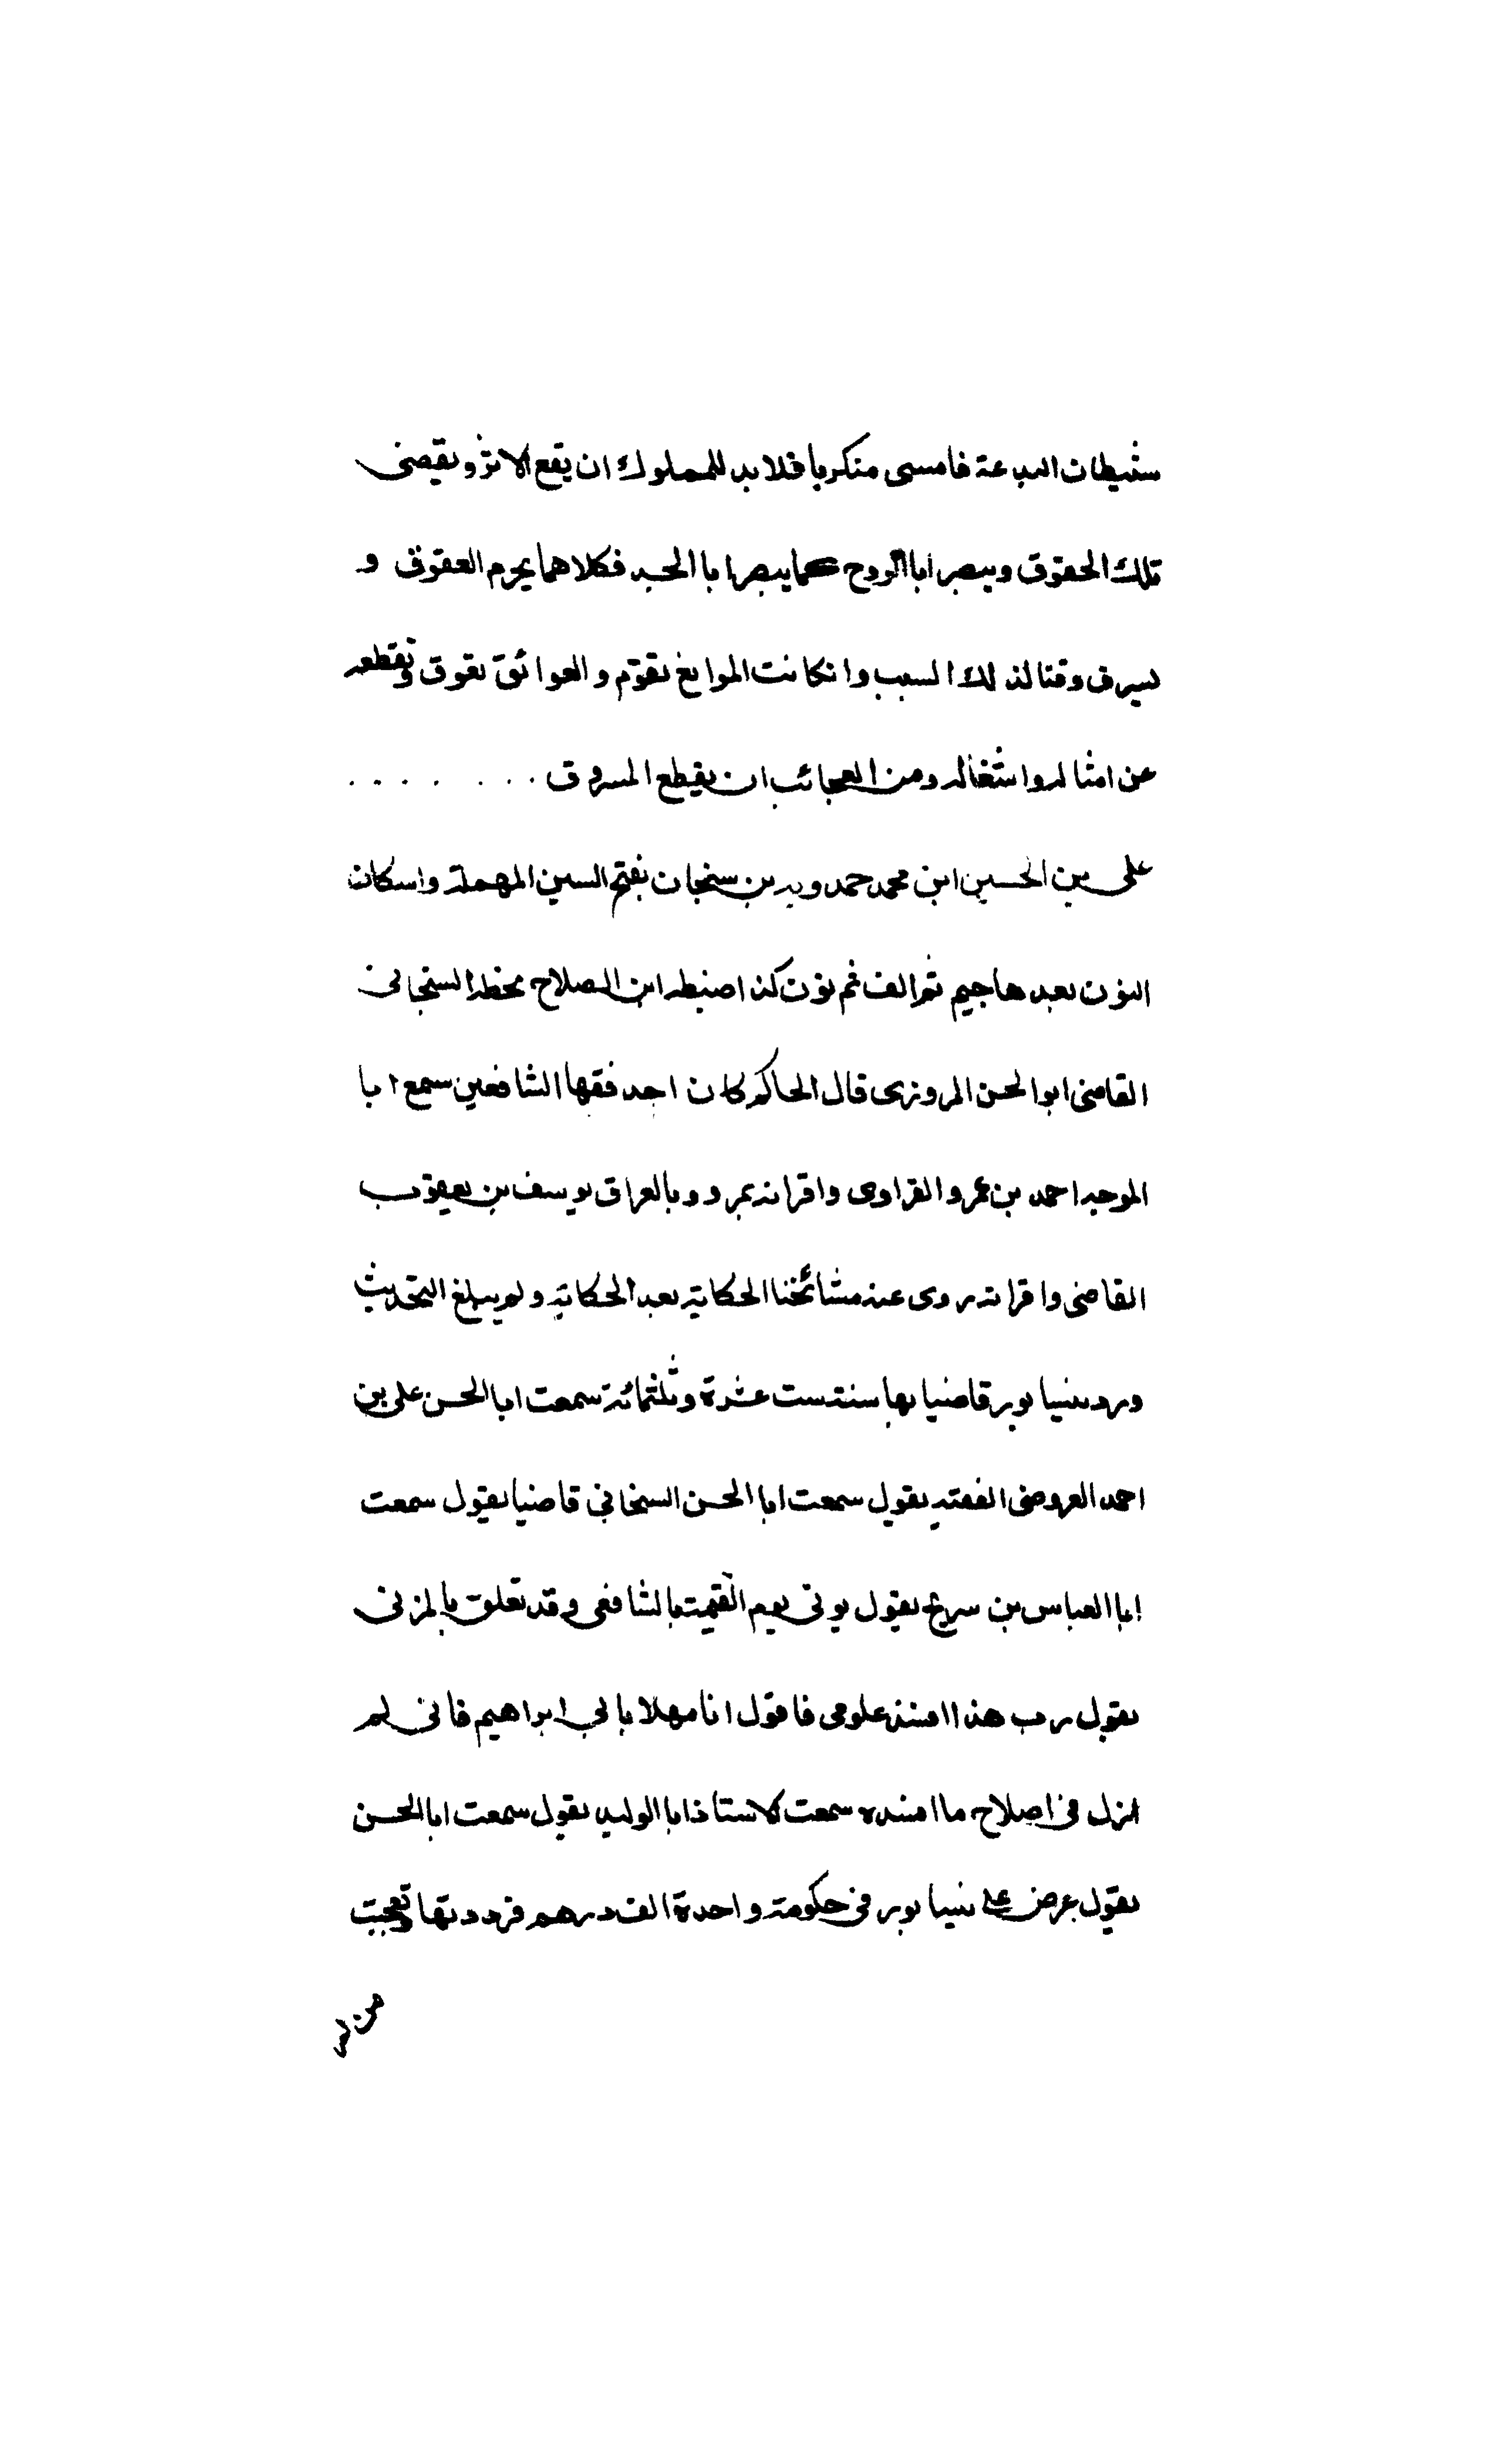 شيطان البدعة فامسى منكربا فلا بد للمملوك ان يقع الاثر ويقضى
تلك الحقوق ويبصر ابا الروح كما يبصر ابا الجسد فكلاهما يحرم العقوق و
يسرق وقتا لذلك السبب وان كانت الموانع تقوم والعوائق تعوق وتقطعه
عن امثاله واشتغاله ومن العجائب ان يقطع المسروق . . . . . . .
على بن الحسين ابن محمد حمدويه بن سنجان بفتح السين المهملة واسكان
النون بعدها جيم ثم الف ثم نون كذا ضبطه ابن الصلاح بخطه السنجانى
القاضى ابو الحسن المروزى قال الحاكم كان احد فقها الشافعين سمع ابا
الموجه احمد بن عمرو الفزاوى واقرانه بمرو وبالعراق يوسف بن يعقوب
القاضى واقرانه روى عنه مشائخنا الحكاية بعد الحكاية ولم يبلغ التحديث
ورد نيسابور قاضيا بها سنة ست عشرة وثلثمائة سمعت ابا الحسن على بن
احمد العروضى الفقيه يقول سمعت ابا الحسن السنجانى قاضيا يقول سمعت
ابا العباس بن سريج يقول يوتى يوم القيمة بالشافعى وقد تعلق بالمزنى
يقول رب هذا افسد علومى فاقول انا مهلا بابى ابراهيم فانى لم
ازل فى اصلاح ما افسده سمعت الاستاذ ابا الوليد يقول سمعت ابا الحسن
يقول عرض على بنيسابور فى حكومة واحدة الف درهم فرددتها وتعجبت
من